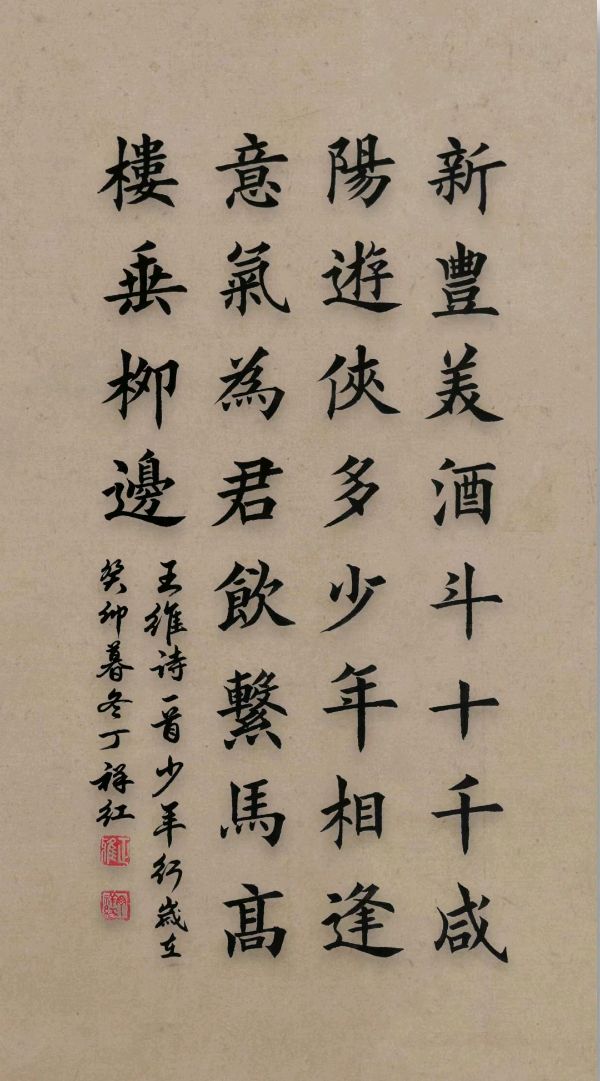 新豐美酒斗十千咸
陽遊俠多少年相逢
意氣為君飲繫馬髙
樓垂柳邊
王維诗一首少年行歲在
癸卯暮冬丁祥红